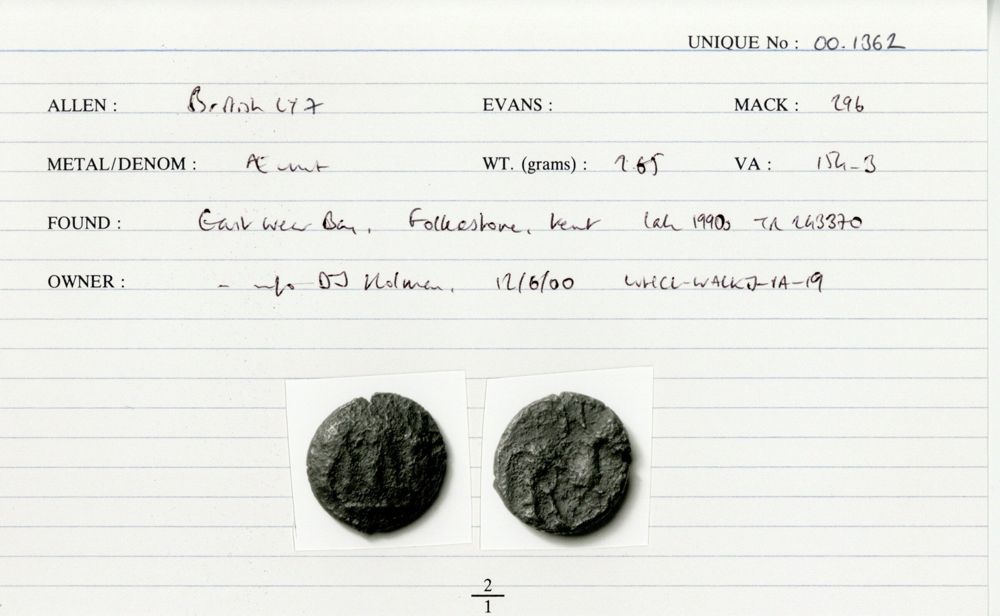 UNIQUE No : 00.1362
ALLEN : British LY7 EVANS : MACK : 296
METAL/DENOM : Æ unit WT. (grams) : 2.65 VA : 154-3
FOUND : East Wear Bay, Folkestone, Kent late 1990s TR 243370
OWNER : - info DJ Holman, 12/6/00
2
1